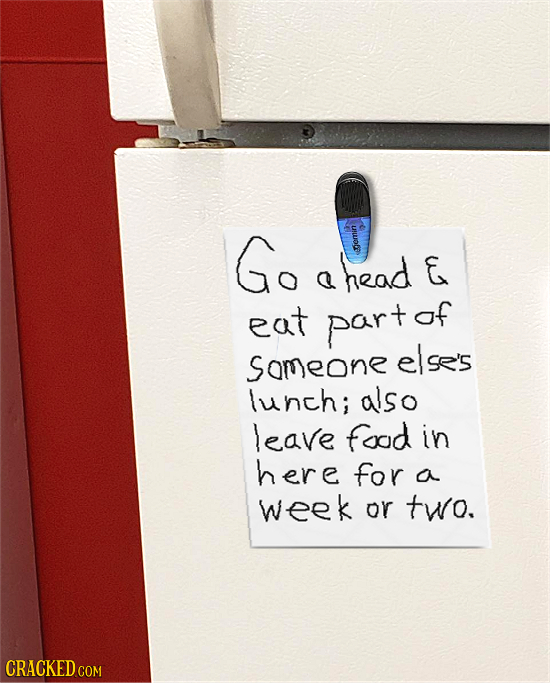 Go ahead &
eat part of
someone else's
lunch; also
leave food in
here for a
week or two.
CRACKED.COM